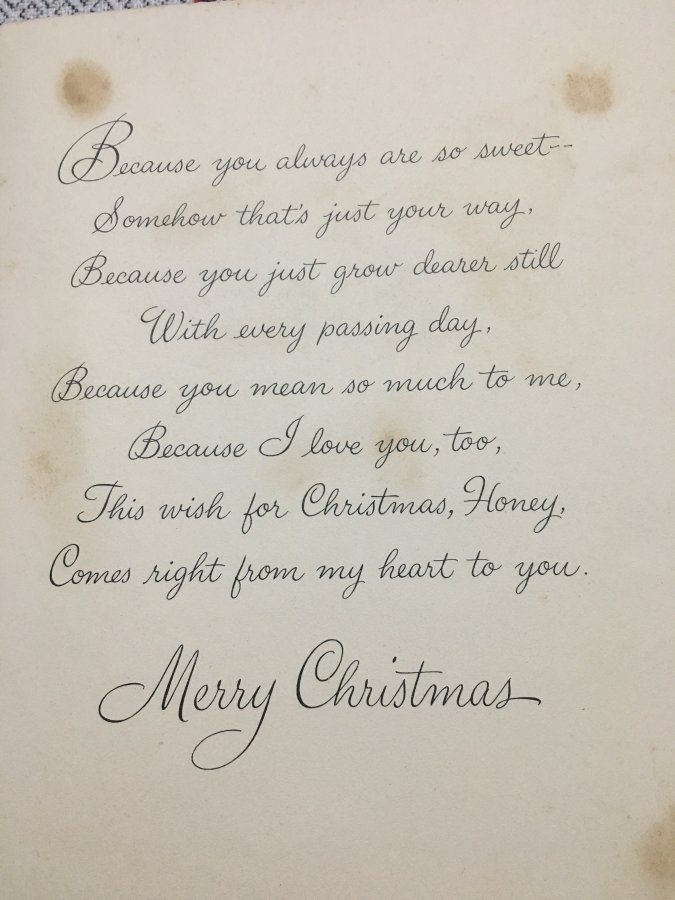 Because you always are so sweet--
Somehow that's just your way,
Because you just grow dearer still
With every passing day,
Because you mean so much to me,
Because I love you, too,
This wish for Christmas, Honey,
Comes right from my heart to you.
Merry Christmas